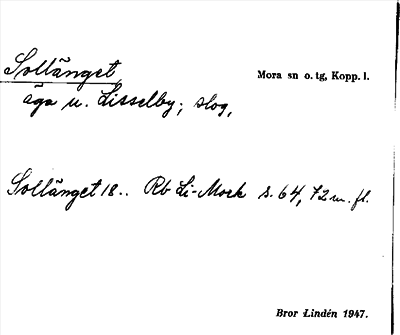 Sollänget
Mora sn o. tg, Kopp. l.
äga u. Lisselby; slog,
Sollänget 18.. Rb Li-Mork s. 64, 72 m. fl.
Bror Lindén 1947.